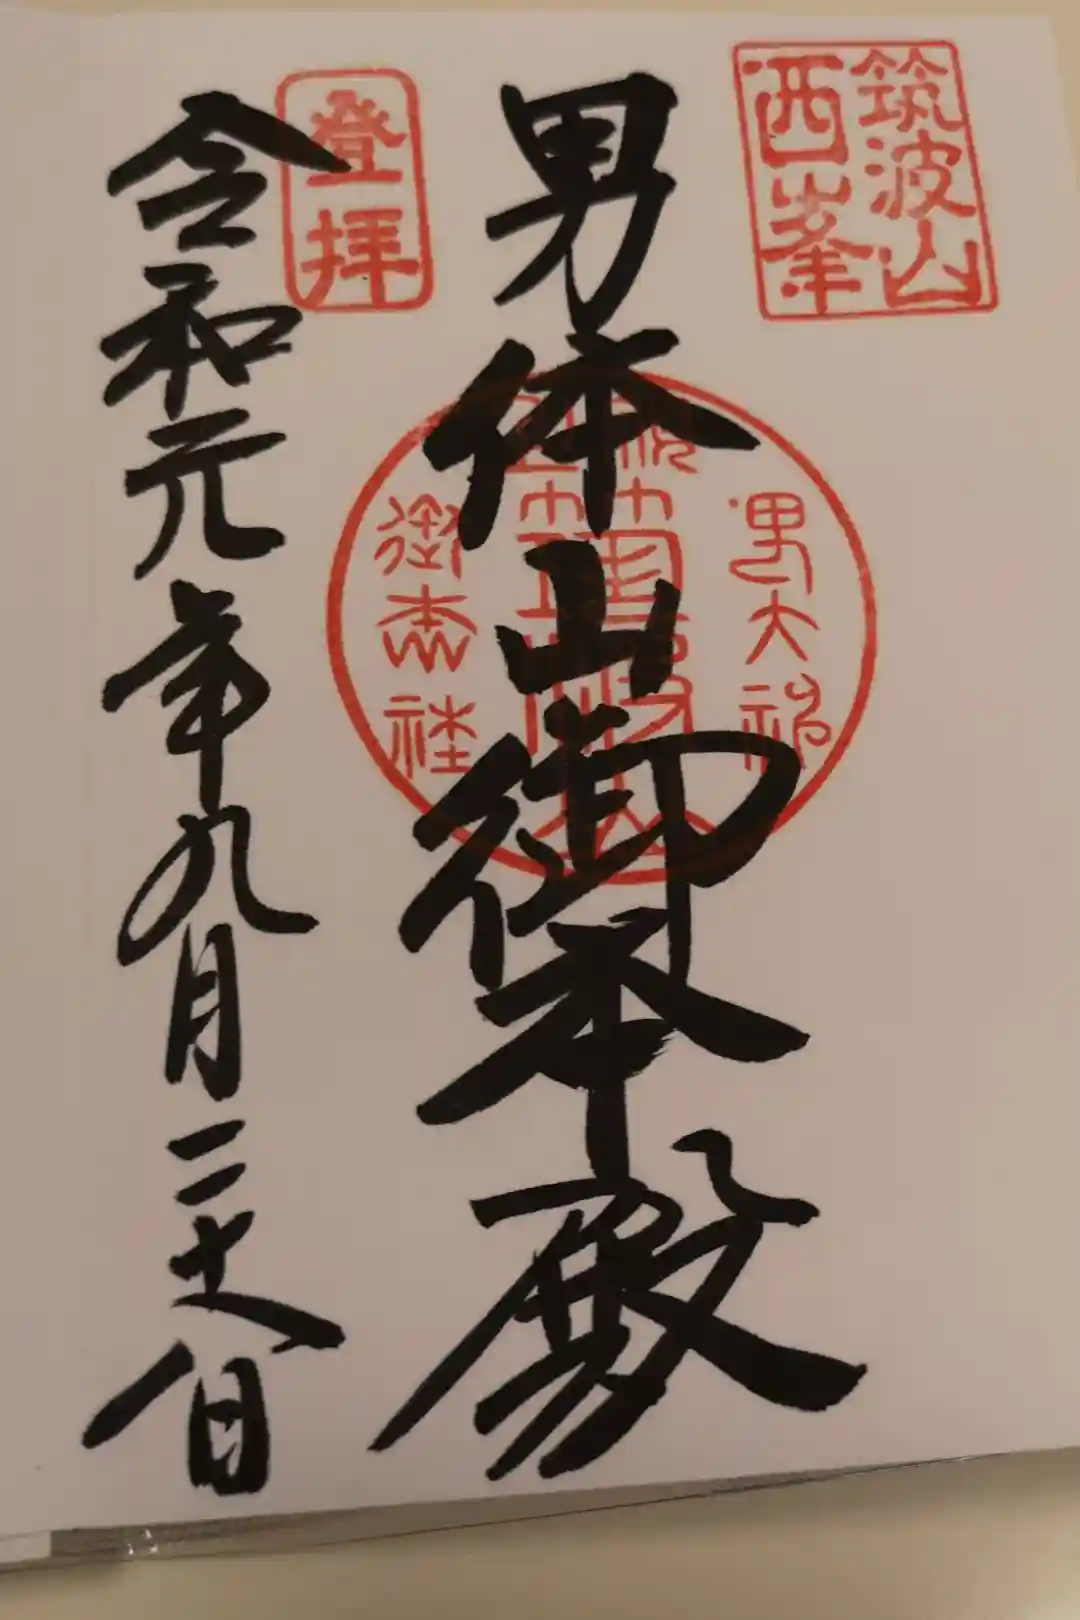 筑波山
西峯
男体山御本殿
男大神
御本社
登拝
令和元年九月二十八日